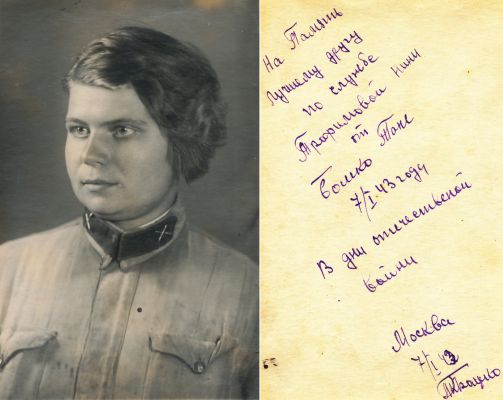 На Память
лучшему другу
по службе
Трофимовой Нине
от Тани
Бошко
7/I 43 году
В дни отечественной
войни
Москва
7/I 43